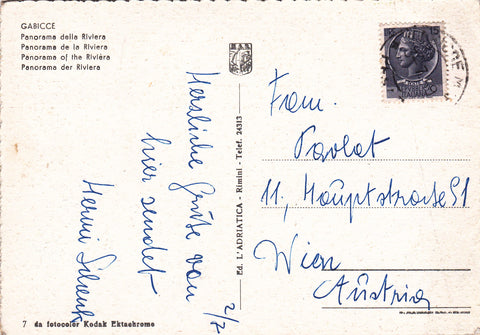 GABICCE
Panorama della Riviera
Panorama de la Riviera
Panorama of the Riviera
Panorama der Riviera
Herzliche Grüße von
hier sendet
Hermi
2/7
Ed. L'ADRIATICA - Rimini - Telef. 24313
Fam.
Pavlat
11, Hauptstraße 51
Wien
Austria
7 da fotocolor Kodak Ektachrome